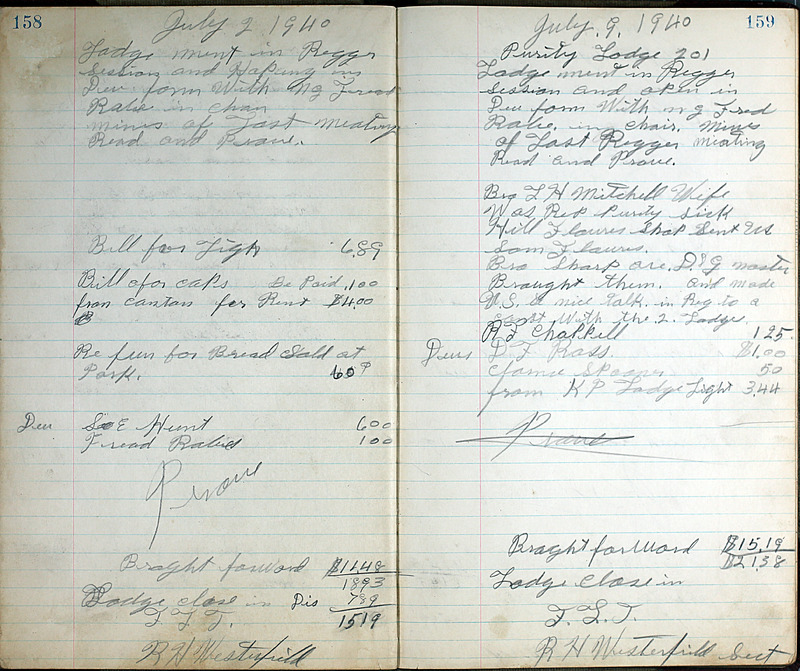 158
July 2 1940
Lodge ment in Regger
Session and Haping in
Deu form With Ng Fread
Ralie in chan
mines of Last meating
Read and Prove.
Bill for Ligh 6.89
Bill ofor caps Be Paid .100
from canton for Rent $4.00
Re fun for Bread Sald at
Park. 60¢
Deu S E Hunt 600
Fread Ralie 100
Prove
Braght forWord $11.48
1893
Lodge close in Dis 789
F L T. 1519
R H Westerfield
159
July. 9, 1940
Purity Lodge 201
Lodge ment in Regger
Session and open in
Deu form With ng Fred
Ralie in chair. Mines
of Last Regger meating
Read and Prove.
Bro L H Mitchell Wife
Was Rep Purity Sick
Hill Flaures Shop Sent Us
Som Flaures.
Bro Sharp are D.D.G master
Braught them. and made
U.S. a nice talk. in Reg to a
With the 2. Lodge.
R F Chappell 125
Deus D F Ross. $1.00
Spooner 50
from K P Lodge Light 3.44
Prove
Braght forWord $15.19
$21.38
Lodge close in
F. L. T.
R H Westerfield Sect